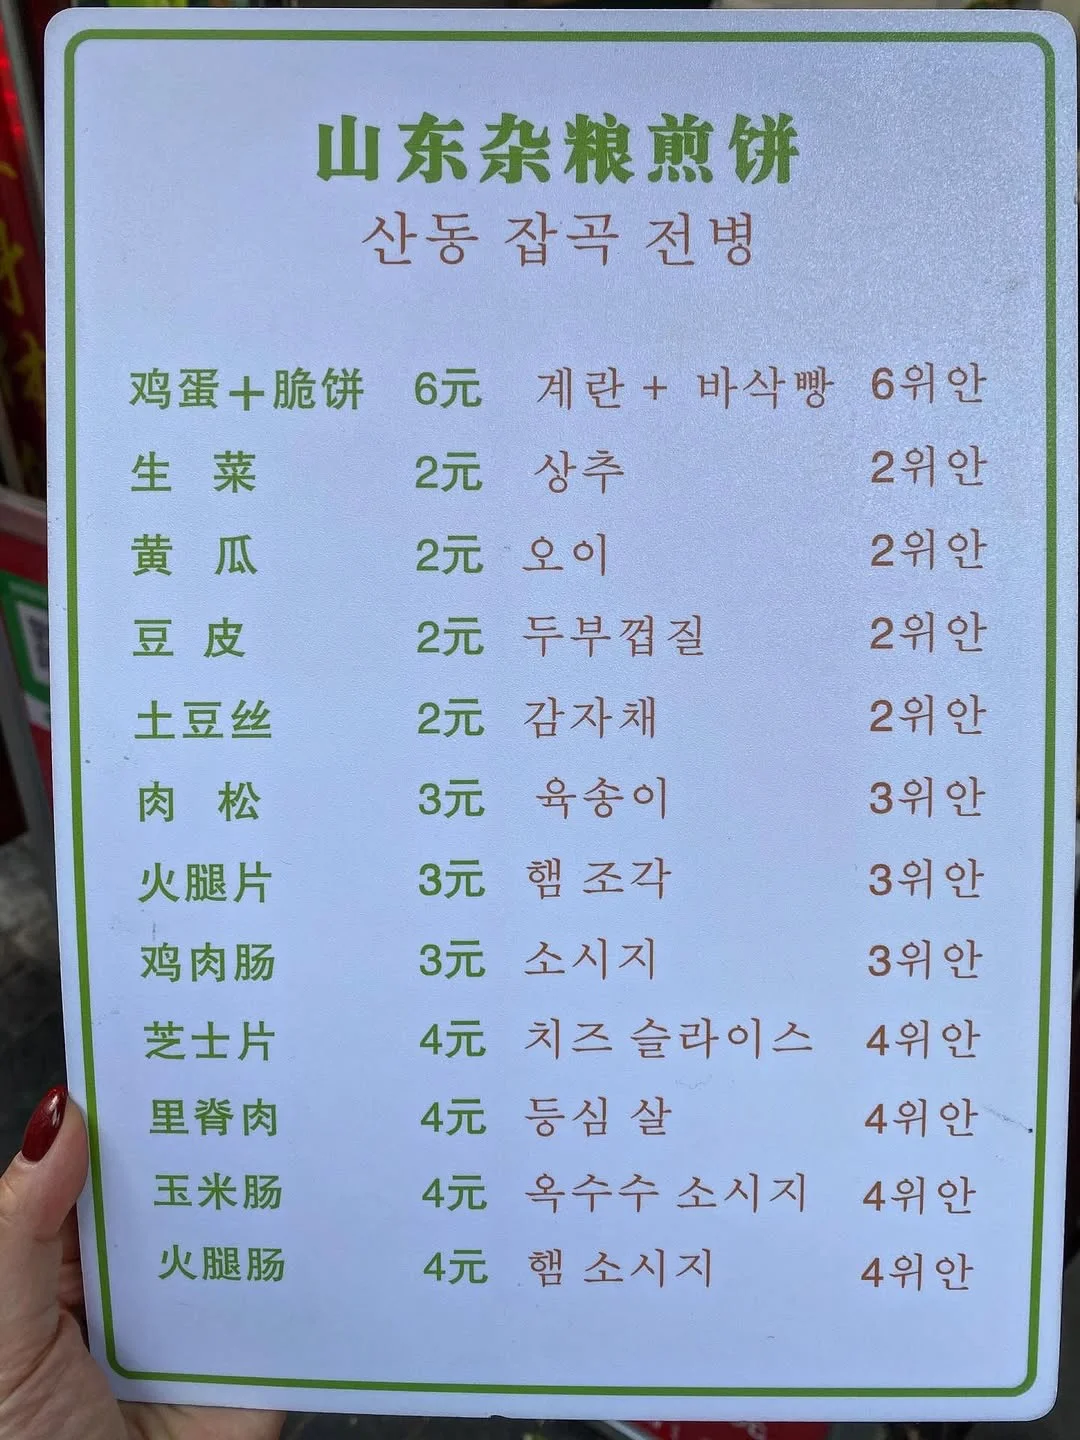 山东杂粮煎饼
산동 잡곡 전병
鸡蛋+脆饼 6元 계란 + 바삭빵 6위안
生 菜 2元 상추 2위안
黄 瓜 2元 오이 2위안
豆 皮 2元 두부껍질 2위안
土豆丝 2元 감자채 2위안
肉 松 3元 육송이 3위안
火腿片 3元 햄 조각 3위안
鸡肉肠 3元 소시지 3위안
芝士片 4元 치즈 슬라이스 4위안
里脊肉 4元 등심 살 4위안
玉米肠 4元 옥수수 소시지 4위안
火腿肠 4元 햄 소시지 4위안